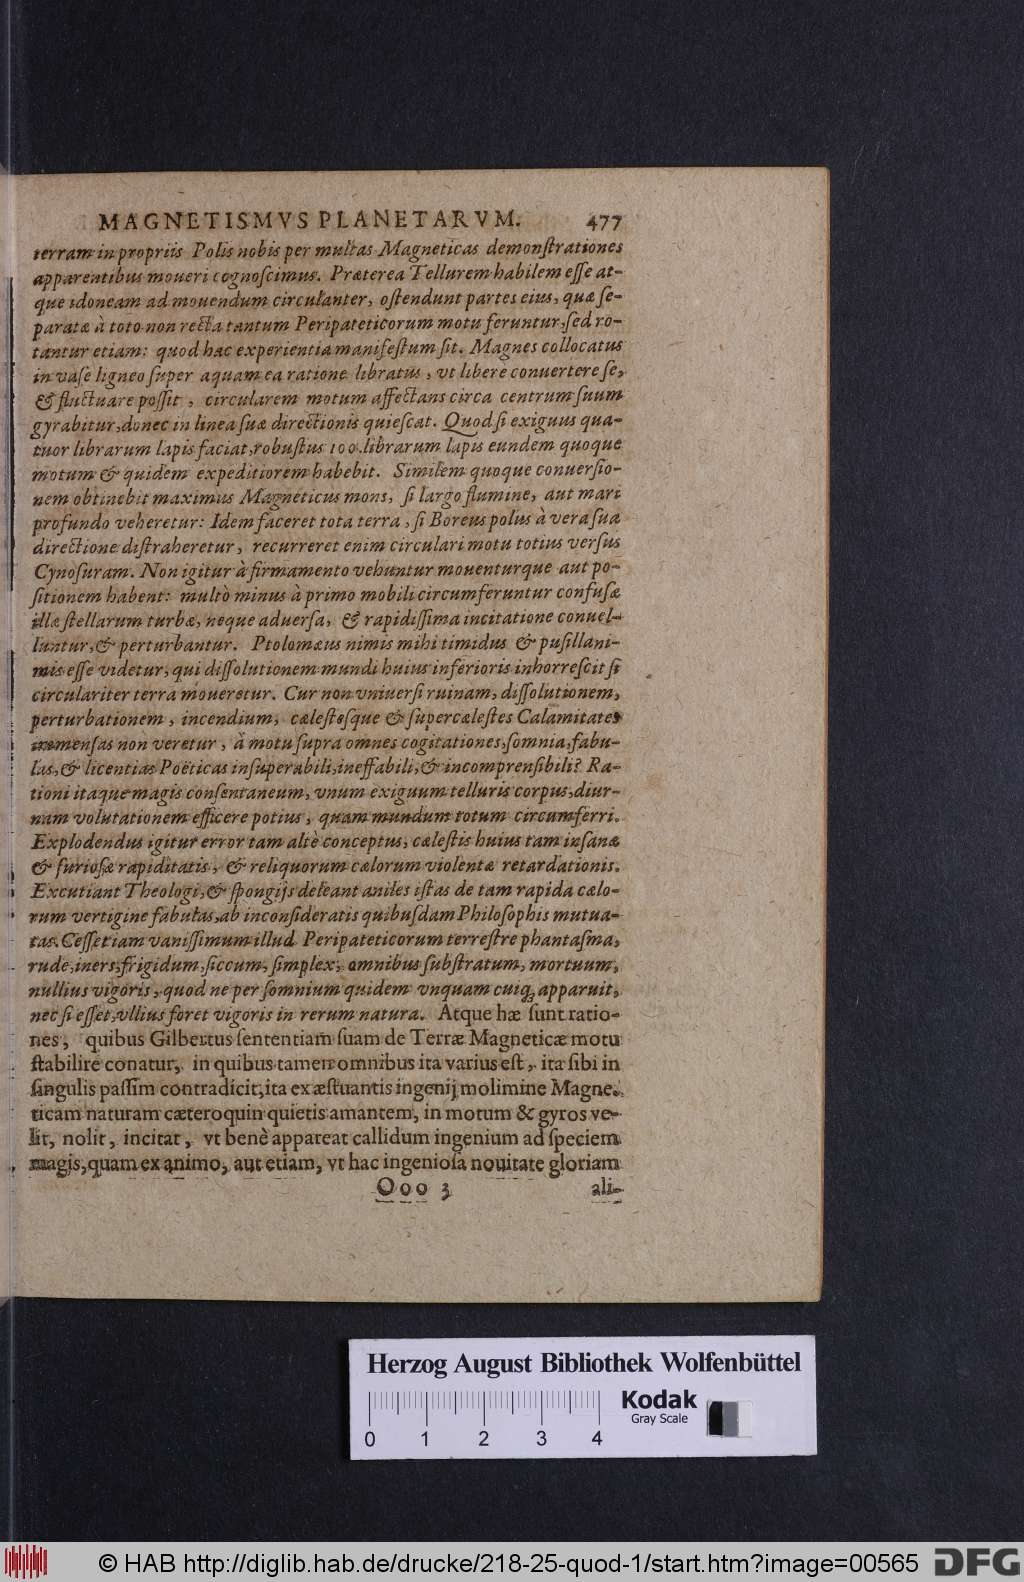 MAGNETISMVS PLANETARVM. 477
terram in propriis Polis nobis per multas Magneticas demonſtrationes
apparentibus moueri cognoſcimus. Præterea Tellurem habilem eſſe at-
que idoneam ad mouendum circulanter, oſtendunt partes eius, quæ ſe-
paratæ à toto non recta tantum Peripateticorum motu feruntur, ſed ro-
tantur etiam: quod hac experientia manifeſtum ſit. Magnes collocatus
in vaſe ligneo ſuper aquam ea ratione libratus, vt libere conuertere ſe,
& fluctuare poſſit, circularem motum affectans circa centrum ſuum
gyrabitur, donec in linea ſuæ directionis quieſcat. Quod ſi exiguus qua-
tuor librarum lapis faciat, robuſtus 100. librarum lapis eundem quoque
motum & quidem expeditiorem habebit. Similem quoque conuerſio-
nem obtinebit maximus Magneticus mons, ſi largo flumine, aut mari
profundo veheretur: Idem faceret tota terra, ſi Boreus polus à vera ſua
directione diſtraheretur, recurreret enim circulari motu totius verſus
Cynoſuram. Non igitur à firmamento vehuntur mouenturque aut po-
ſitionem habent: multò minus à primo mobili circumferuntur confuſæ
illæ ſtellarum turbæ, neque aduerſa, & rapidiſſima incitatione conuel-
luntur, & perturbantur. Ptolomæus nimis mihi timidus & puſillani-
mis eſſe videtur, qui diſſolutionem mundi huius inferioris inhorreſcit ſi
circulariter terra moueretur. Cur non vniuerſi ruinam, diſſolutionem,
perturbationem, incendium, cæleſtesque & ſupercæleſtes Calamitates
immenſas non veretur, à motu ſupra omnes cogitationes, ſomnia, fabu-
las, & licentias Poëticas inſuperabili, ineffabili, & incomprenſibili? Ra-
tioni itaque magis conſentaneum, vnum exiguum telluris corpus, diur-
nam volutationem efficere potius, quam mundum totum circumferri.
Explodendus igitur error tam altè conceptus, cæleſtis huius tam inſanæ
& furioſæ rapiditatis, & reliquorum cælorum violentæ retardationis.
Excutiant Theologi, & ſpongijs deleant aniles iſtas de tam rapida cælo-
rum vertigine fabulas, ab inconſideratis quibuſdam Philoſophis mutua-
tas. Ceſſet iam vaniſſimum illud Peripateticorum terreſtre phantaſma,
rude, iners, frigidum, ſiccum, ſimplex, omnibus ſubſtratum, mortuum,
nullius vigoris, quod ne per ſomnium quidem vnquam cuiq; apparuit,
nec ſi eſſet, vllius foret vigoris in rerum natura. Atque hæ ſunt ratio-
nes, quibus Gilbertus ſententiam ſuam de Terræ Magneticæ motu
ſtabilire conatur, in quibus tamen omnibus ita varius eſt, ita ſibi in
ſingulis paſſim contradicit, ita ex æſtuantis ingenij molimine Magne-
ticam naturam cæteroquin quietis amantem, in motum & gyros ve-
lit, nolit, incitat, vt benè appareat callidum ingenium ad ſpeciem
magis, quam ex animo, aut etiam, vt hac ingenioſa nouitate gloriam
Ooo 3 ali-
Herzog August Bibliothek Wolfenbüttel
Kodak
Gray Scale
0 1 2 3 4
© HAB http://diglib.hab.de/drucke/218-25-quod-1/start.htm?image=00565 DFG